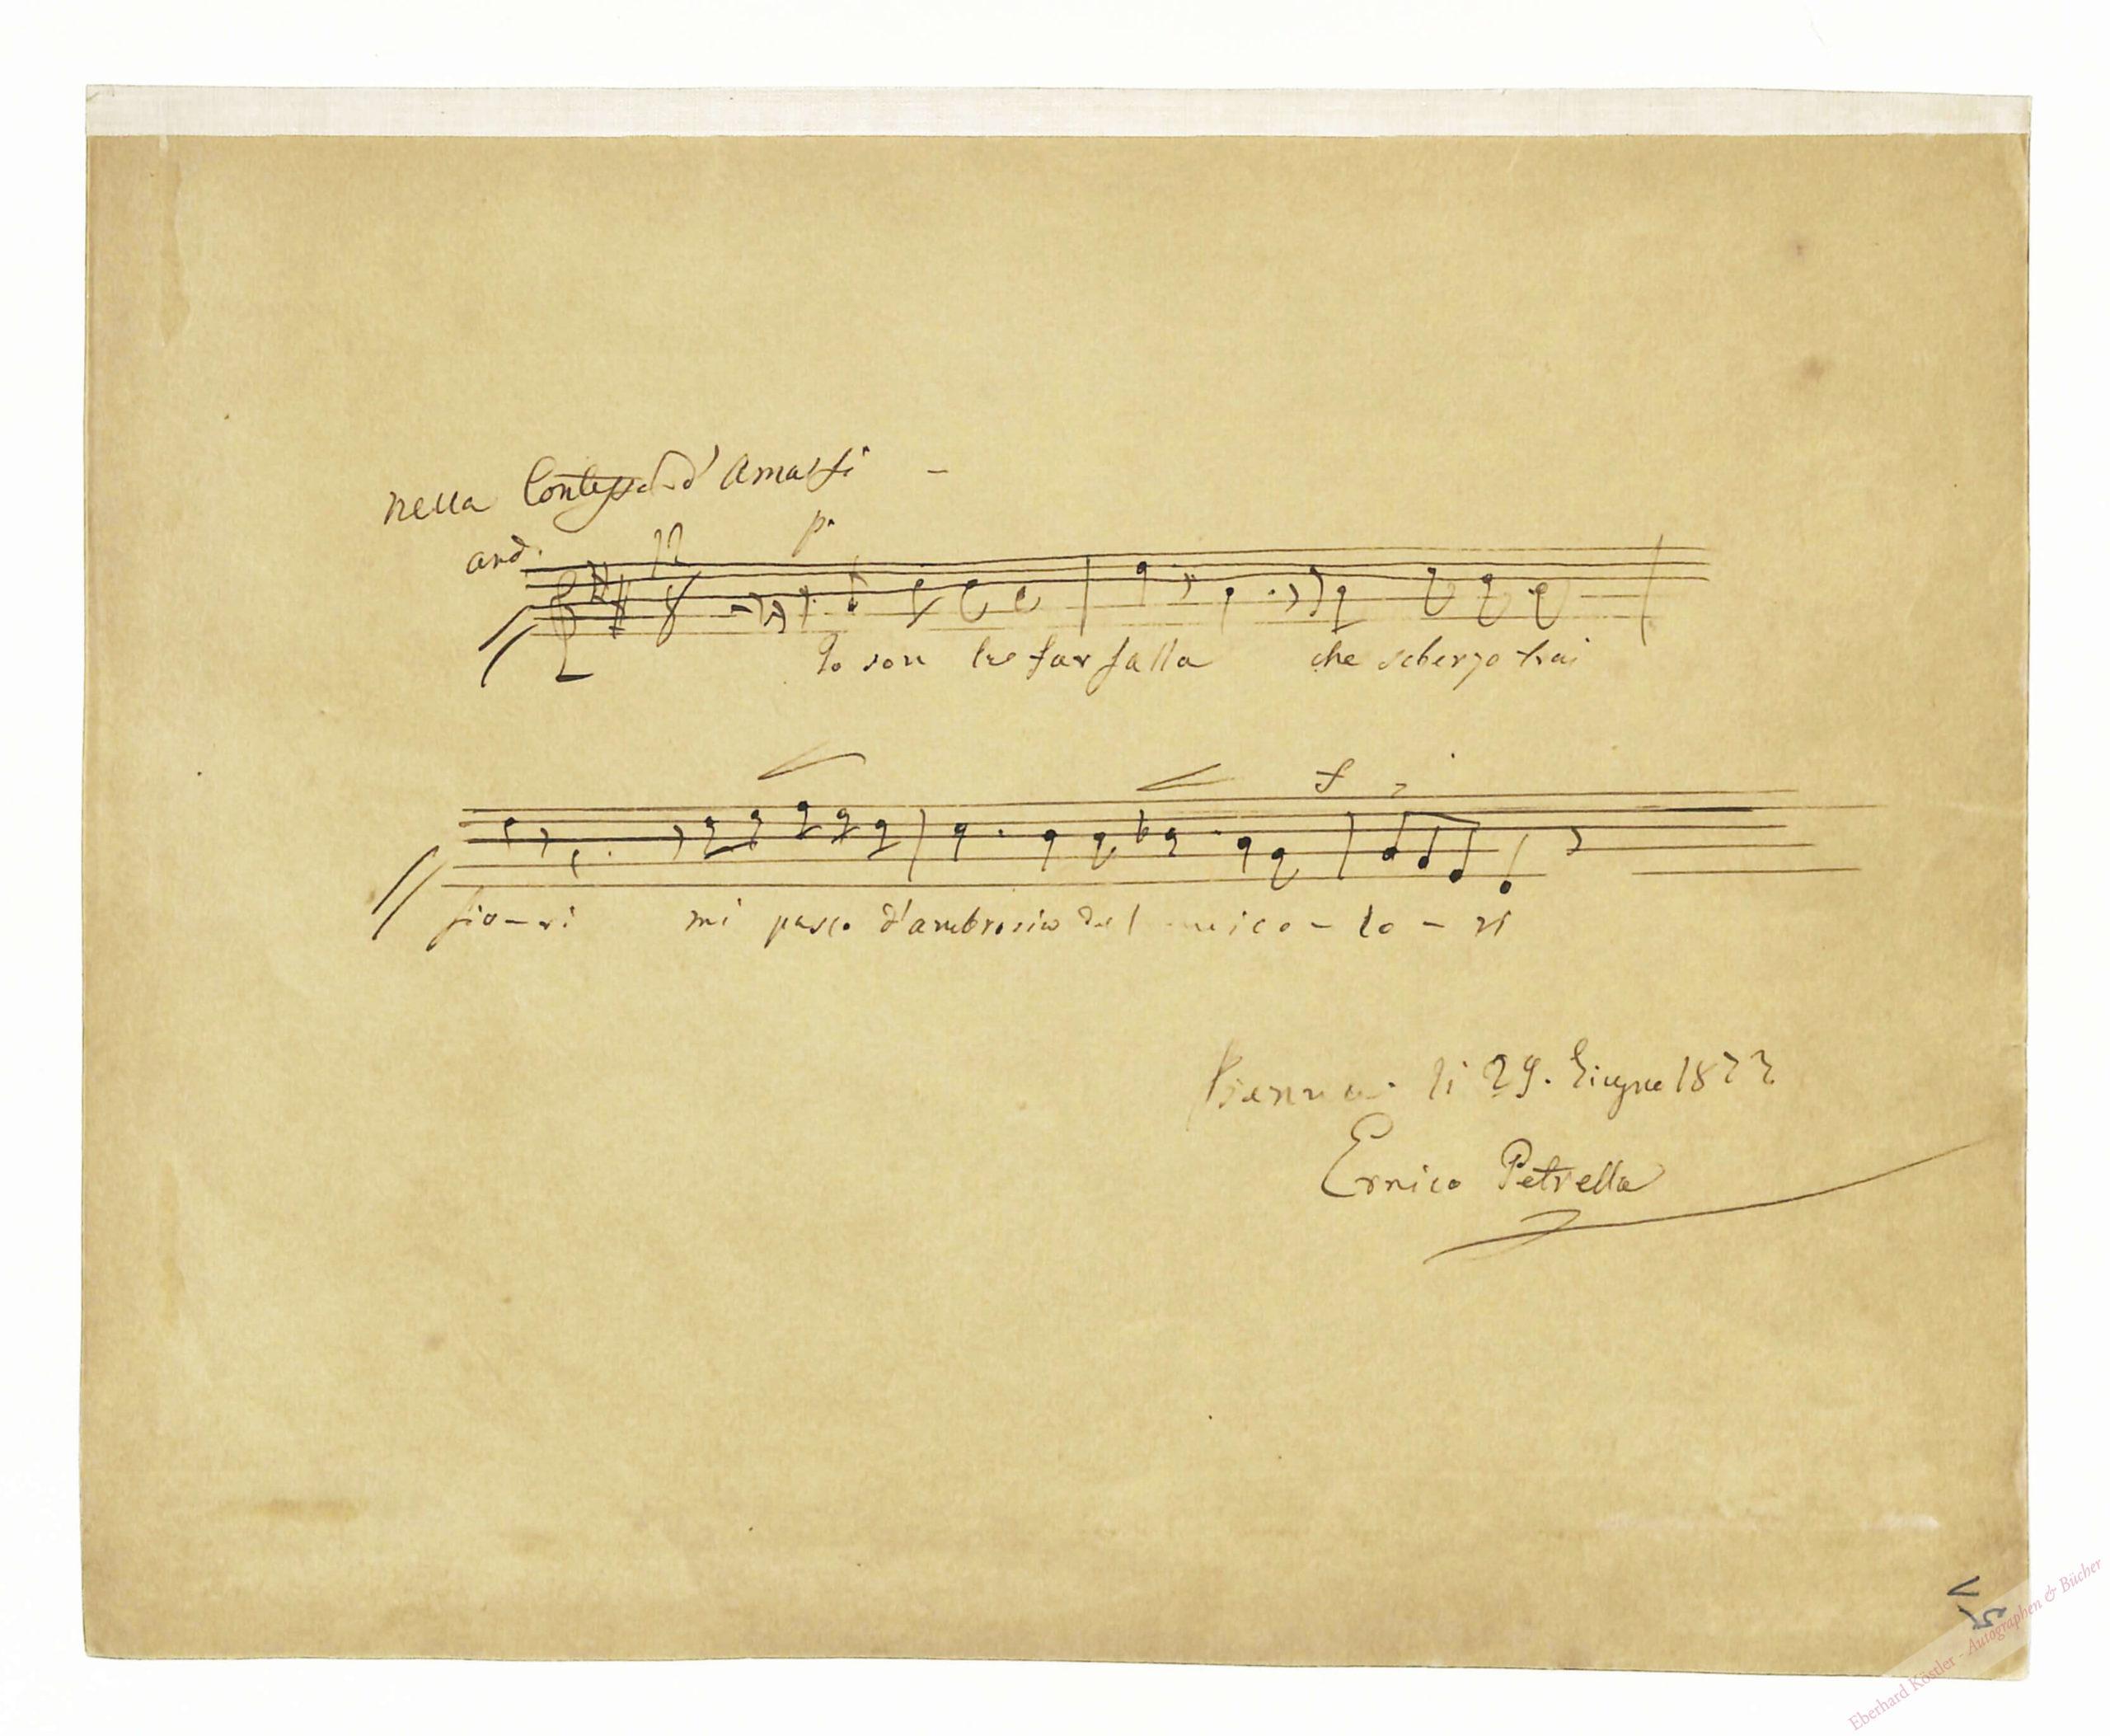 Nella Contessa d'Amalfi –
and. 12 p.
8
Io son la farfalla che scherzo trai
f
fio–ri mi pasco d'ambrosia del miico–lo–ri
Vienna. li 29. Giugno 1877
Errico Petrella
V 5
Eberhard Köstler - Autographen & Bücher